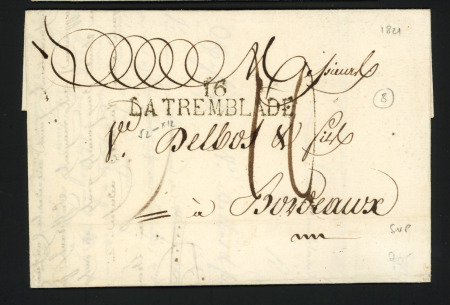 1821
Messieurs
16
LA TREMBLADE
8
Ve Delbos & fils
à Bordeaux
SUP